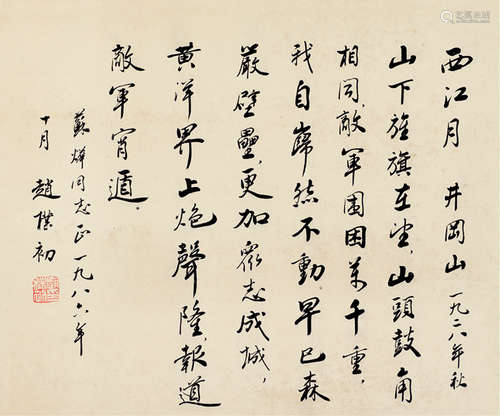 西江月 井岡山 一九二八年秋
山下旌旗在望,山頭鼓角
相聞,敵軍圍困萬千重,
我自巋然不動,早已森
嚴壁壘,更加衆志成城,
黃洋界上炮聲隆,報道
敵軍宵遁.
蘇燁同志正 一九八六年
十月 趙樸初